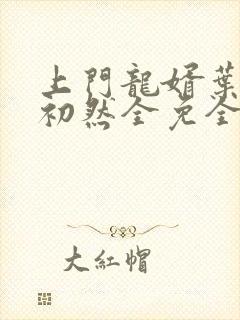 上門龍婿葉
初然全免全
大紅帽